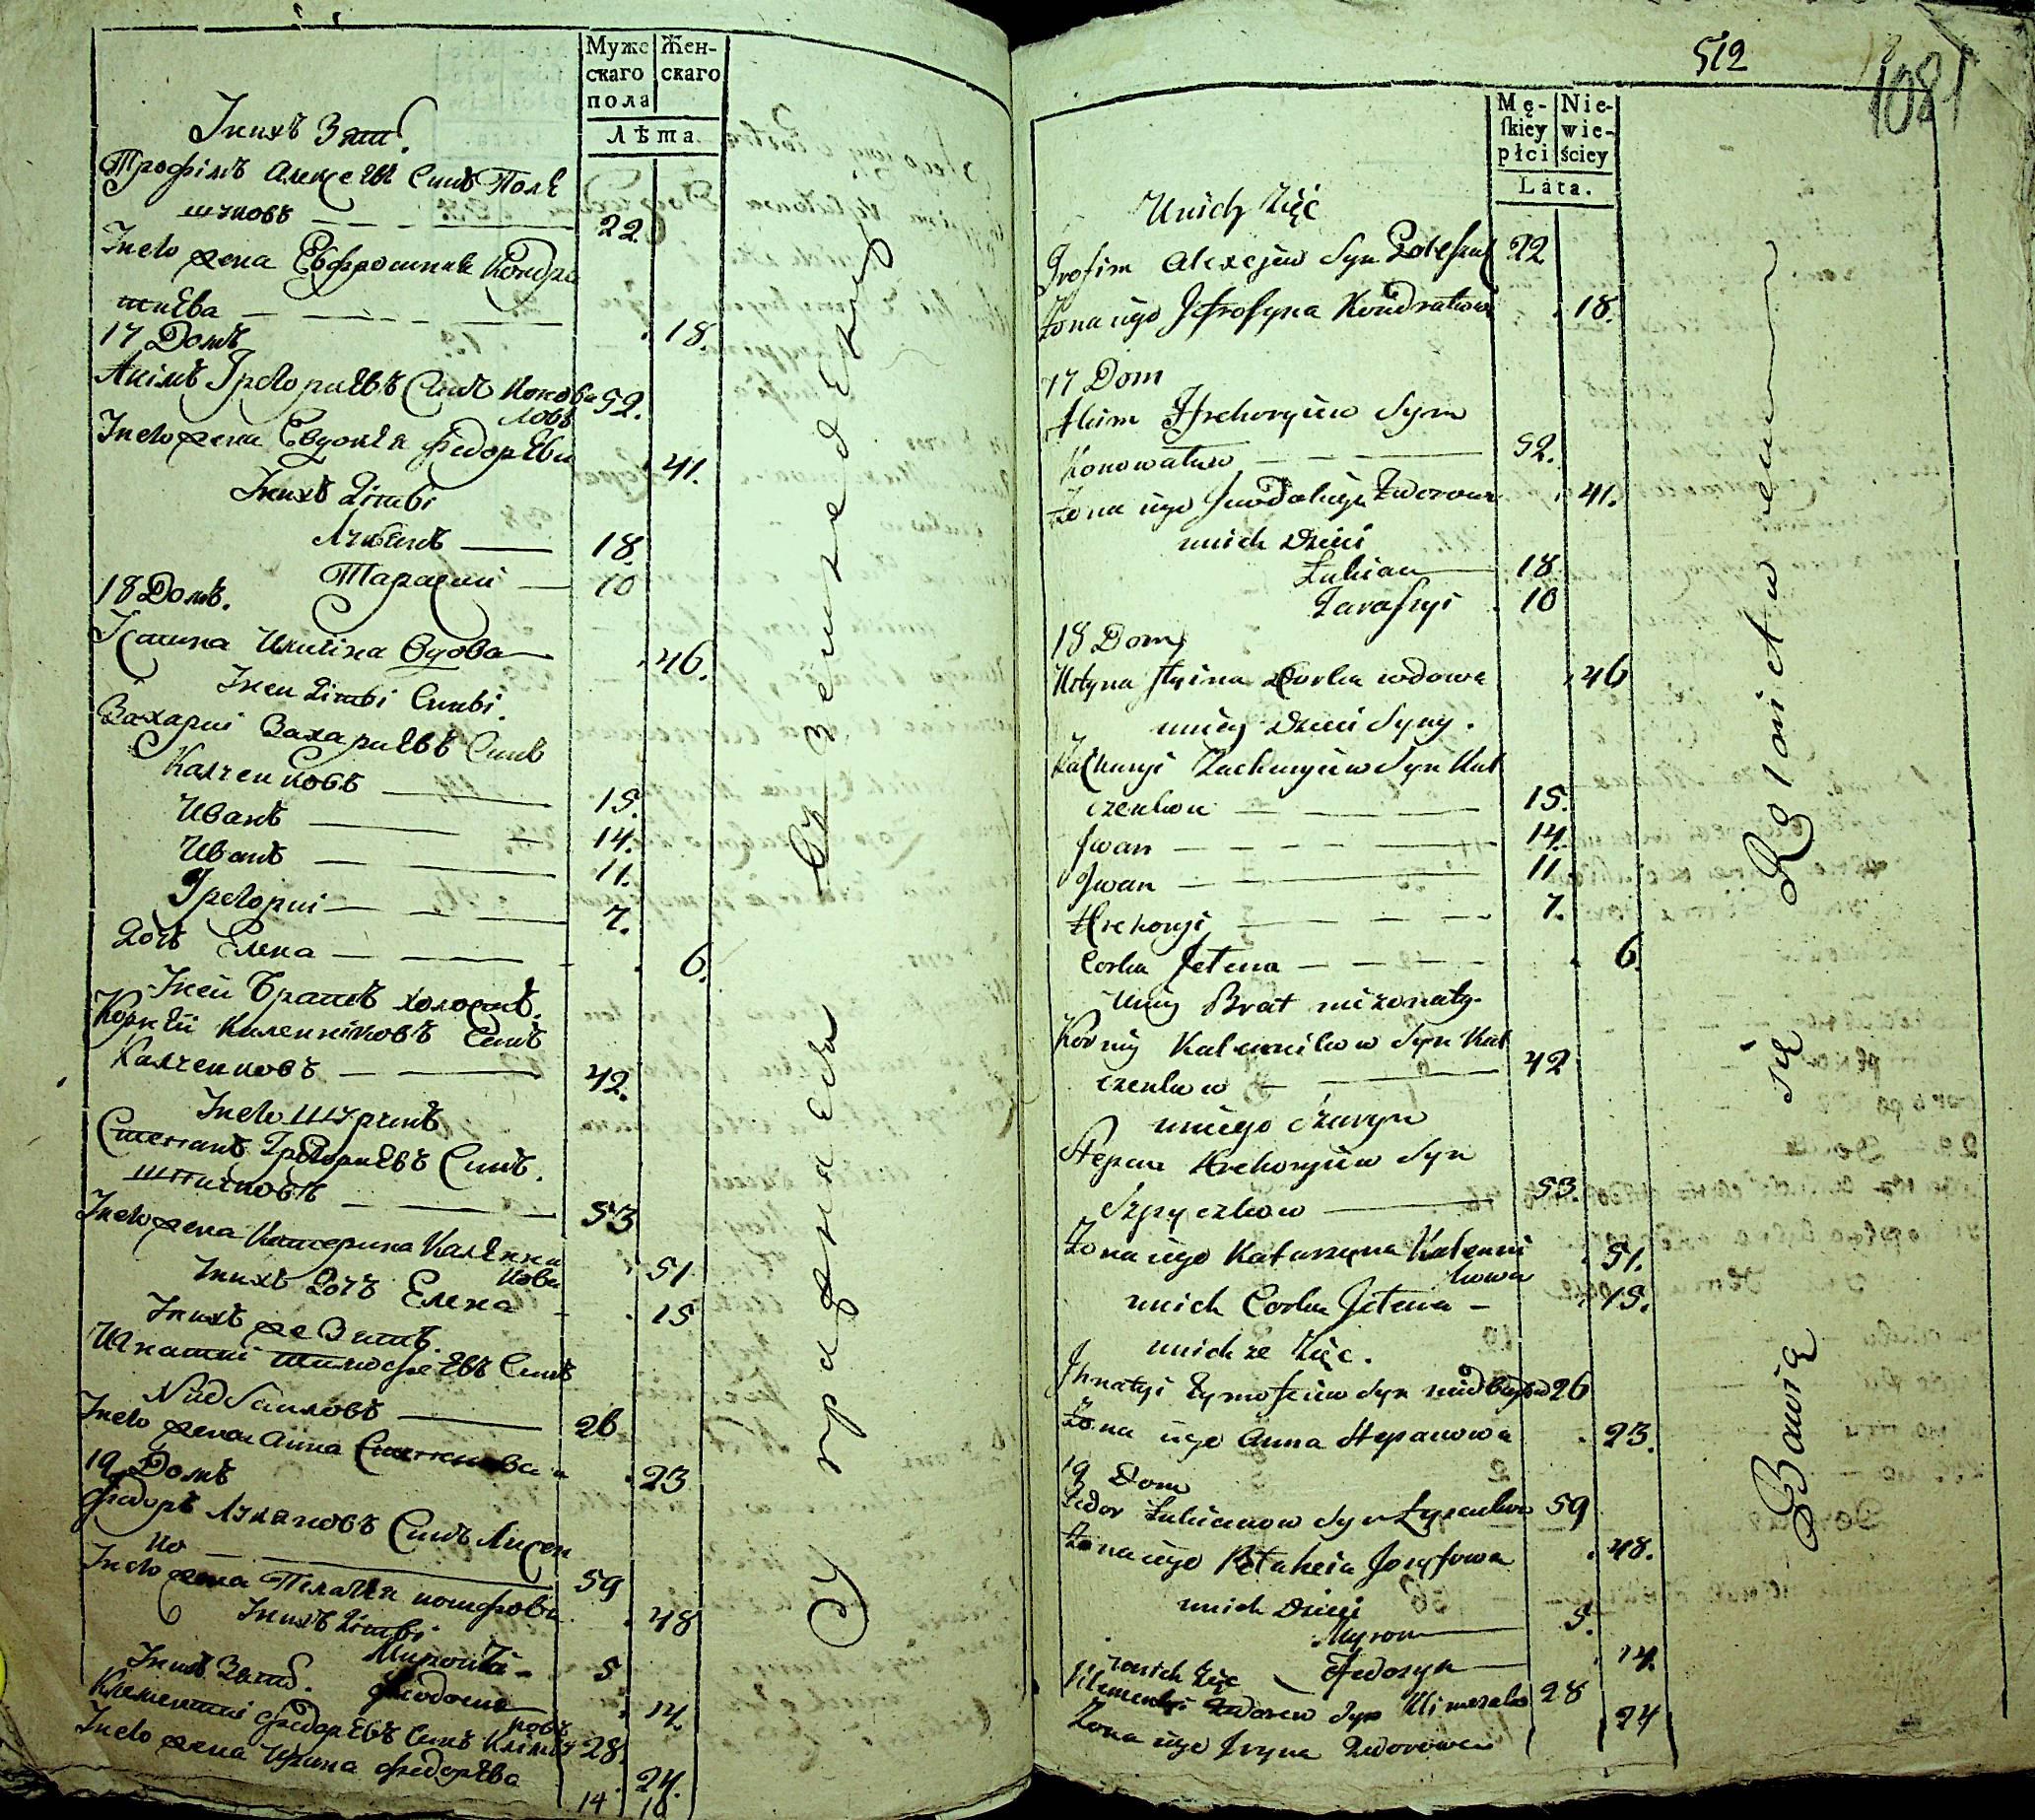 Муже
скаго
пола
Жен-
скаго
Лѣта.
Унихъ Зять
Трофімъ Алексѣевъ Синъ Поле
22.
Унего жена Ефросиния Кондра
тиева
18.
17 Домъ
Акімъ Григориевъ Синъ Конова
ловъ
52.
Унего жена Евдокѣя Федорѣва
41.
Унихъ Дѣти
Лукъянъ
18.
Тарасий
10
18 Домъ.
Устина Илиіна Вдова
46.
Унеи Дѣти Сини.
Захарии Захариевъ Синъ
Калченковъ
15.
Иванъ
14.
Иванъ
11.
Григории
7.
Дочъ Елена
6.
Унеи Братъ холостъ.
Корнѣй Каленниковъ Синъ
Калченковъ
42.
Унего Шуринъ
Степанъ Григориевъ Синъ.
53
Унего жена Катерина Каленни
кова
51
Унихъ Дочъ Елена
15
Унихъ же Зять.
Игнатий Тимофѣевъ Синъ
26
Унего жена Анна Степанова
23
19 Домъ
Федоръ Лукяновъ Синъ Лисен
ко
59
Унего жена Пелагѣя Иосифова
48
Унихъ Дѣти
Миронъ
5
Феодосия
14.
Унихъ Зять.
Климентий Федорѣвъ Синъ
28.
Унего жена Ирина Федорѣва
24.
14 10
Упражняется Земледелиемъ
512
1081
Mę-
skiey
płci
Nie-
wie-
ściey
Lata.
Unich Zięć
Trofim Alexejew Syn
22
Zona iego Jefrosyna Kondratowa
18.
17 Dom
Akim Hrehoryiew Syn
Konowałow
52.
Zona iego Jewdokija Fedorowa
41.
unich Dzieci
Łukian
18
Tarasyi
10
18 Dom
Ustyna Corka wdowa
46
uniey Dzieci Syny.
Zacharyi Zacharyiew Syn Kal
czenkow
15.
Jwan
14.
Jwan
11
Hrehoryi
7.
Corka Jelena
6.
Uniey Brat nieżonaty.
Korniy Kalennikow Syn Kal
czenkow
42
uniego Szuryn
Stepan Hrehoryiew Syn
53.
Zona iego Katarzyna Kalenni
kowa
51.
unich Corka Jelena
15.
unich że Zięć.
Jhnatyi Tymofeiew Syn
26
Zona iego Anna Stepanowa
23.
19 Dom
Fedor Łukianow Syn Łysenko
59
Zona iego Pelaheia Jozyfowa
48.
unich Dzieci
Myron
5.
Fedosyia
14.
unich Zięć
Klementyi Fedorow Syn
28
Zona iego Jryna Fedorowa
24
Bawią się Rolnictwem